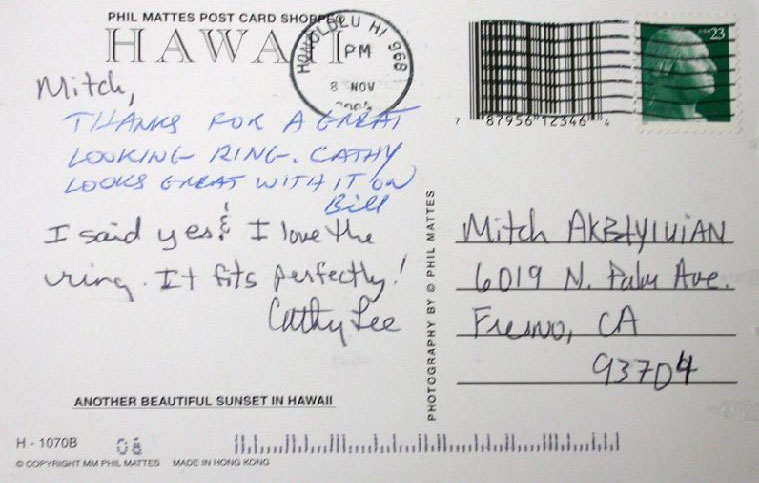 PHIL MATTES POST CARD SHOPPE
HAWAII
HONOLULU HI 968
PM
8 NOV
23
7 87956 12346 4
Mitch,
THANKS FOR A GREAT
LOOKING RING. CATHY
LOOKS GREAT WITH IT ON
Bill
I said yes & I love the
ring. It fits perfectly!
Cathy Lee
PHOTOGRAPHY BY © PHIL MATTES
Mitch
6019 N. Palm Ave.
Fresno, CA
93704
ANOTHER BEAUTIFUL SUNSET IN HAWAII
H - 1070B
08
© COPYRIGHT MM PHIL MATTES MADE IN HONG KONG